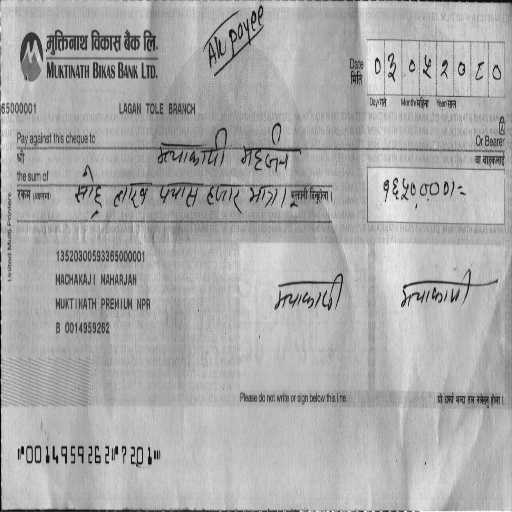 मुक्तिनाथ विकास बैंक लि.
MUKTINATH BIKAS BANK LTD.
A/c payee
Date
मिति
०३०५२०८०
Day गते Month महिना Year साल
65000001
LAGAN TOLE BRANCH
Pay against this cheque to
श्री
मचाकाजी महर्जन
Or Bearer
वा वाहकलाई
the sum of
रकम (अक्षरमा)
सोह्र लाख पचास हजार मात्र।
भुक्तानी दिनुहोला।
१६५०,०००।=
United Multi Printers
13520300593365000001
MACHAKAJI MAHARJAN
MUKTINATH PREMIUM NPR
B 0014959262
मचाकाजी
मचाकाजी
Please do not write or sign below this line.
यो धर्सा भन्दा तल नलेख्नु होला।
⑈0014959262⑈7201⑈